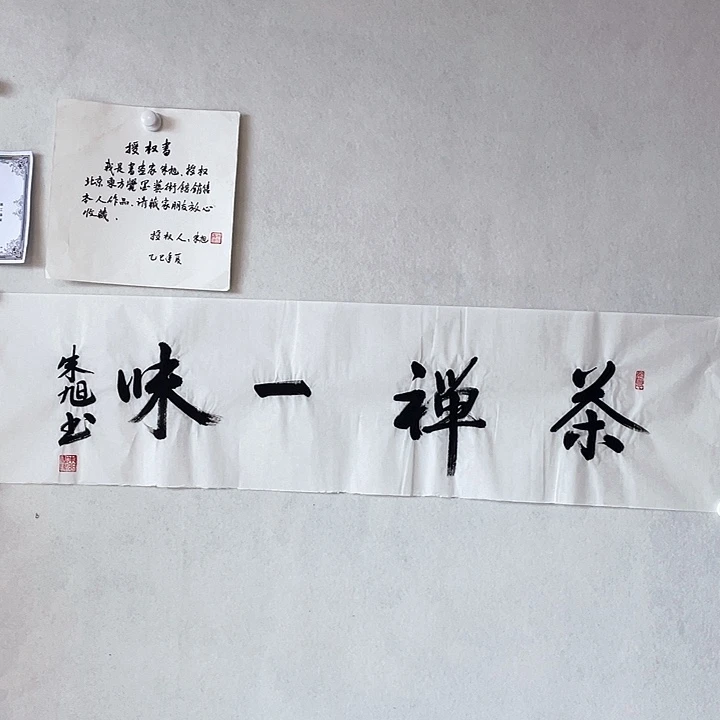 授权书
我是書画家朱旭、授权
北京東方璽墨藝術館銷售
本人作品、请藏家朋友放心
收藏。
授权人：朱旭
乙巳年夏
茶禅一味
朱旭书